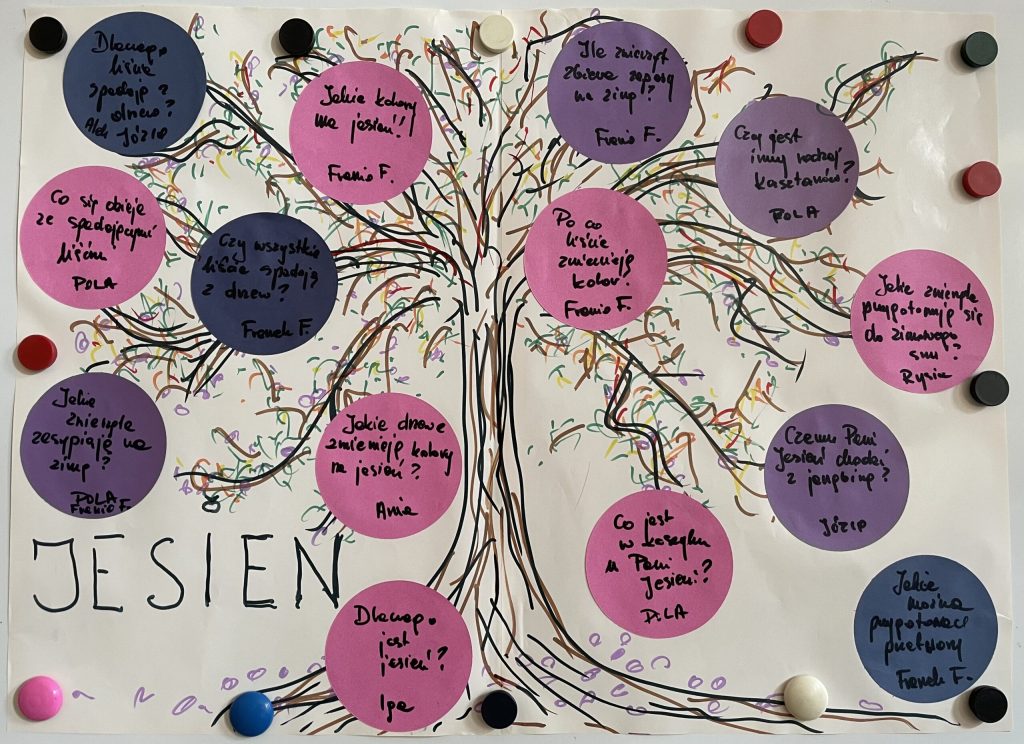 Dlaczego
liście
spadają z
drzew?
Józio
Jakie kolory
ma jesień?
Franio F.
Ile zwierząt
zbiera zapasy
na zimę?
Franio F.
Czy jest
inny rodzaj
kasztanów?
POLA
Co się dzieje
ze spadającymi
liśćmi
POLA
Czy wszystkie
liście spadają
z drzew?
Franek F.
Po co
liście
zmieniają
kolor?
Franio F.
Jakie zwierzęta
przygotowują się
do zimowego
snu?
Rysia
Jakie
zwierzęta
zasypiają na
zimę?
POLA
Franio F.
Jakie drzewa
zmieniają kolory
na jesień?
Ania
Czemu Pani
Jesień chodzi
z jarzębiną?
Józio
Co jest
w koszyku
u Pani
Jesieni?
POLA
JESIEŃ
Dlaczego
jest
jesień?
Iga
Jakie
można
przygotować
przetwory
Franek F.